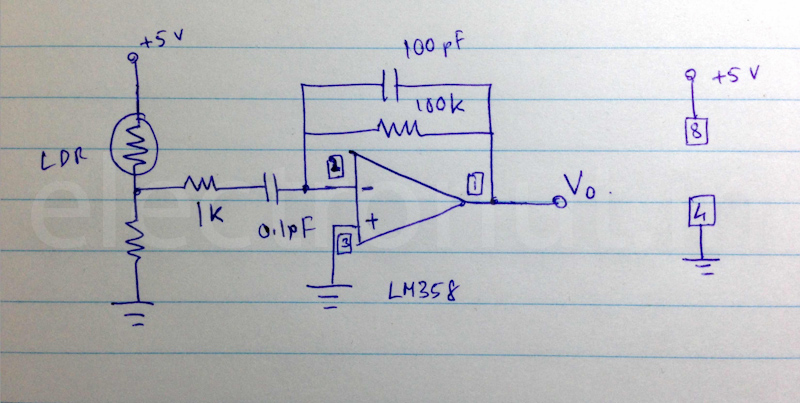 +5 V
100 pF
100k
+5 V
8
LDR
2
1
-
V0
1K
0.1pF
+
3
4
LM358